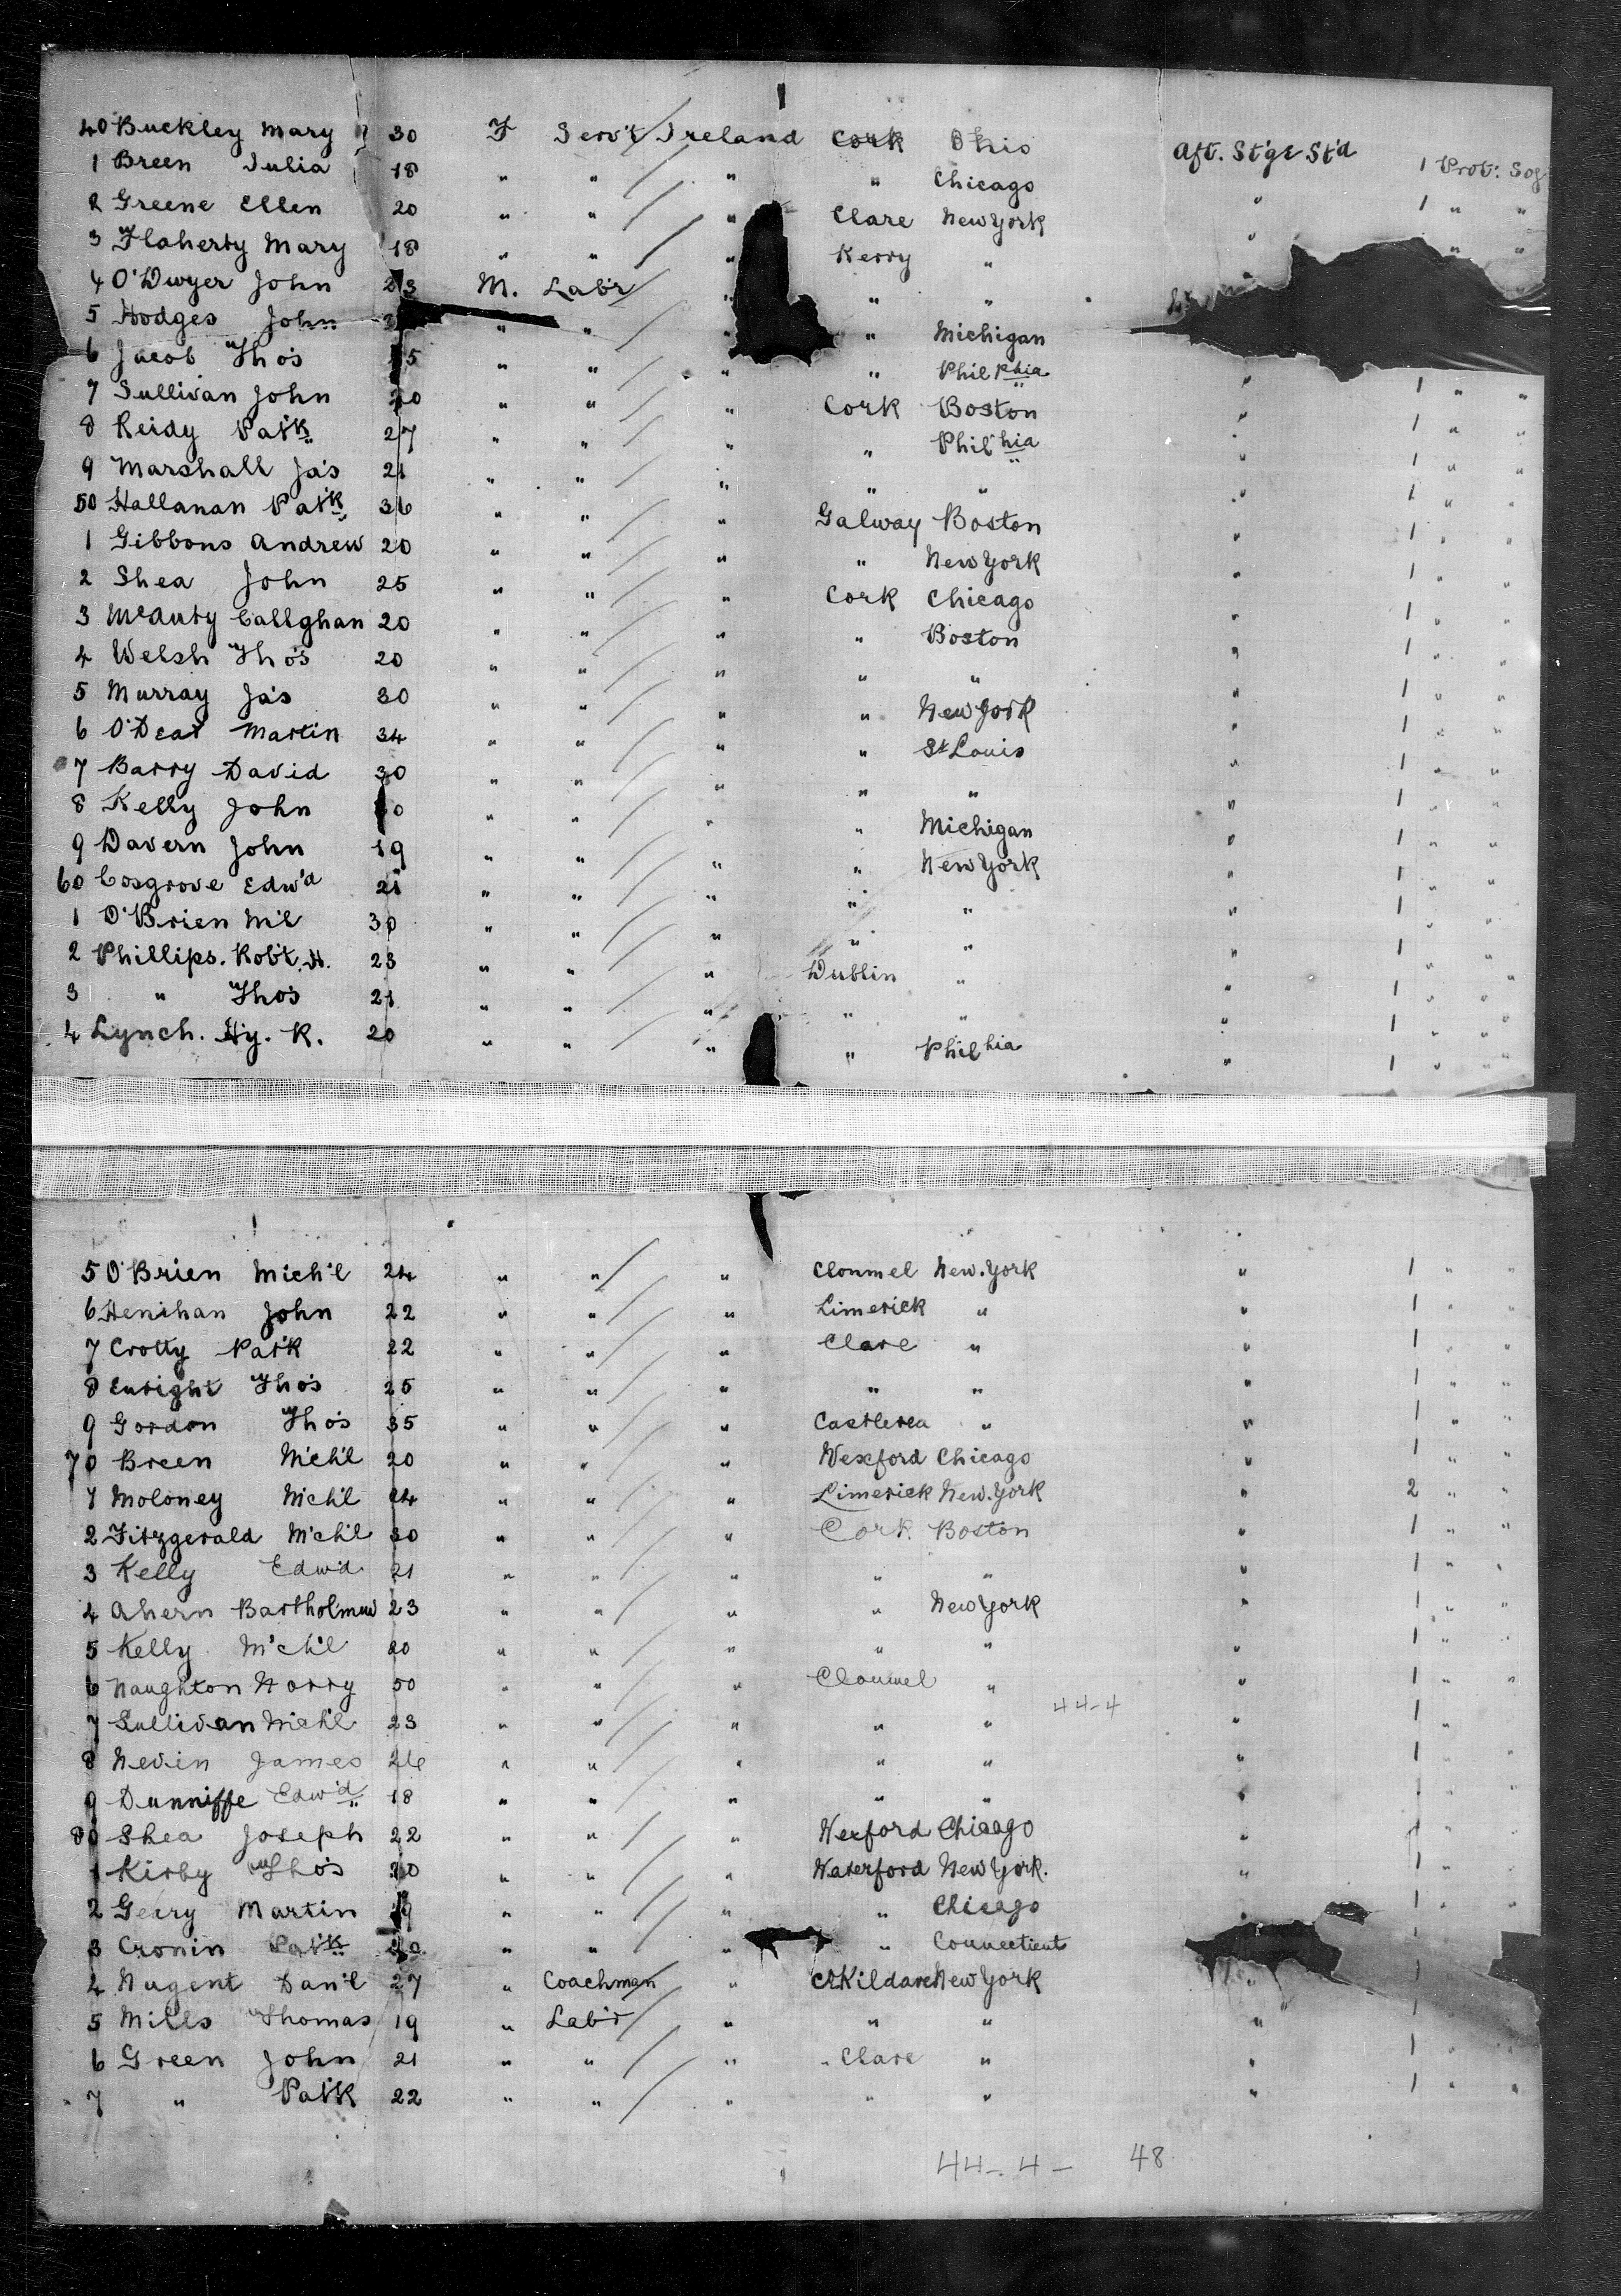 40 Buckley Mary 30 F Serv't Ireland Cork Ohio Aft. St'ge St'd 1 Prot:
1 Breen Julia 18 " " " " Chicago " 1 " "
2 Greene Ellen 20 " " " Clare New York " " "
3 Flaherty Mary 18 " " " Kerry "
4 O'Dwyer John 23 M. Lab'r " " "
5 Hodges John " " " " Michigan
6 Jacob Tho's " " " " Phil phia " 1 " "
7 Sullivan John 20 " " " Cork Boston " 1 " "
8 Reidy Pat'k 27 " " " " Phil'hia " 1 " "
9 Marshall Ja's 21 " " " " " " 1 " "
50 Hallanan Pat'k 36 " " " Galway Boston " 1 " "
1 Gibbons Andrew 20 " " " " New York " 1 " "
2 Shea John 25 " " " Cork Chicago " 1 " "
3 Callghan 20 " " " " Boston " 1 " "
4 Welsh Tho's 20 " " " " " " 1 " "
5 Murray Ja's 30 " " " " New York " 1 " "
6 O'Dear Martin 34 " " " " St Louis " 1 " "
7 Barry David 30 " " " " " " 1 " "
8 Kelly John " " " " Michigan " 1 " "
9 Davern John 19 " " " " New York " 1 " "
60 Cosgrove Edw'd 21 " " " " " " 1 " "
1 O'Brien M'l 30 " " " " " " 1 " "
2 Phillips. Rob't. H. 23 " " " Dublin " " 1 " "
3 " Tho's 21 " " " " " " 1 " "
4 Lynch. Hy. R. 20 " " " " Phil hia " 1 " "
5 O'Brien Mich'l 24 " " " Clonmel New. York " 1 " "
6 Henihan John 22 " " " Limerick " " 1 " "
7 Crotty Pat'k 22 " " " Clare " " 1 " "
8 Enright Tho's 25 " " " " " " 1 " "
9 Gordon Tho's 35 " " " Castlerea " " 1 " "
70 Breen Mich'l 20 " " " Wexford Chicago " 1 " "
1 Moloney Mich'l 24 " " " Limerick New. York " 2 " "
2 Fitzgerald Mich'l 30 " " " Cork Boston " 1 " "
3 Kelly Edw'd 21 " " " " " " 1 " "
4 Ahern Barthol'mew 23 " " " " New York " 1 " "
5 Kelly Mich'l 20 " " " " " " 1 " "
6 Naughton Harry 50 " " " Clonmel " " 1 " "
44-4
7 Sullivan Mich'l 23 " " " " " " 1 " "
8 Nevin James 26 " " " " " " 1 " "
9 Dunniffe Edw'd 18 " " " " " " 1 " "
80 Shea Joseph 22 " " " Wexford Chicago " 1 " "
1 Kirby Tho's 20 " " " Waterford New York. " 1 " "
2 Geary Martin 19 " " " " Chicago " 1 " "
3 Cronin Pat'k " " " " Connecticut 1
4 Nugent Dan'l 27 " Coachman " Co Kildare New York " 1
5 Mills Thomas 19 " Lab'r " " " " 1 "
6 Green John 21 " " " Clare " " 1 " "
7 " Pat'k 22 " " " " " " 1 " "
44-.4- 48